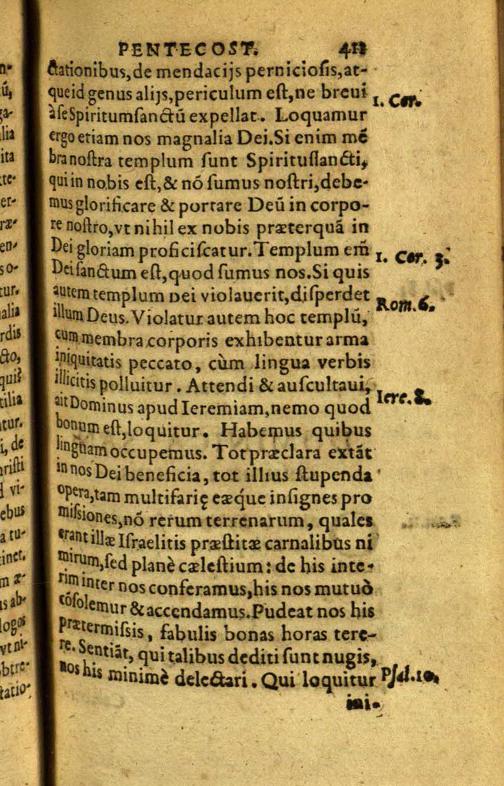 PENTECOST. 411
ctationibus, de mendacijs perniciosis, at-
queid genus alijs, periculum est, ne breui
à se Spiritumsanctū expellat. Loquamur
1. Cor.
ergo etiam nos magnalia Dei. Si enim mē
bra nostra templum sunt Spiritussancti,
qui in nobis est, & nō sumus nostri, debe-
mus glorificare & portare Deū in corpo-
re nostro, vt nihil ex nobis præterquā in
Dei gloriam proficiscatur. Templum em̄
1. Cor. 3.
Dei sanctum est, quod sumus nos. Si quis
autem templum Dei violauerit, disperdet
illum Deus. Violatur autem hoc templū,
Rom. 6.
cum membra corporis exhibentur arma
iniquitatis peccato, cùm lingua verbis
illicitis polluitur. Attendi & auscultaui,
ait Dominus apud Ieremiam, nemo quod
Iere. 8.
bonum est, loquitur. Habemus quibus
linguam occupemus. Tot præclara extāt
in nos Dei beneficia, tot illius stupenda
opera, tam multifarię eæque insignes pro
missiones, nō rerum terrenarum, quales
erant illæ Israelitis præstitæ carnalibus ni
mirum, sed planè cælestium: de his inte-
rim inter nos conferamus, his nos mutuò
cōsolemur & accendamus. Pudeat nos his
prætermissis, fabulis bonas horas tere-
re. Sentiāt, qui talibus dediti sunt nugis,
nos his minimè delectari. Qui loquitur
Psal. 10.
ini-